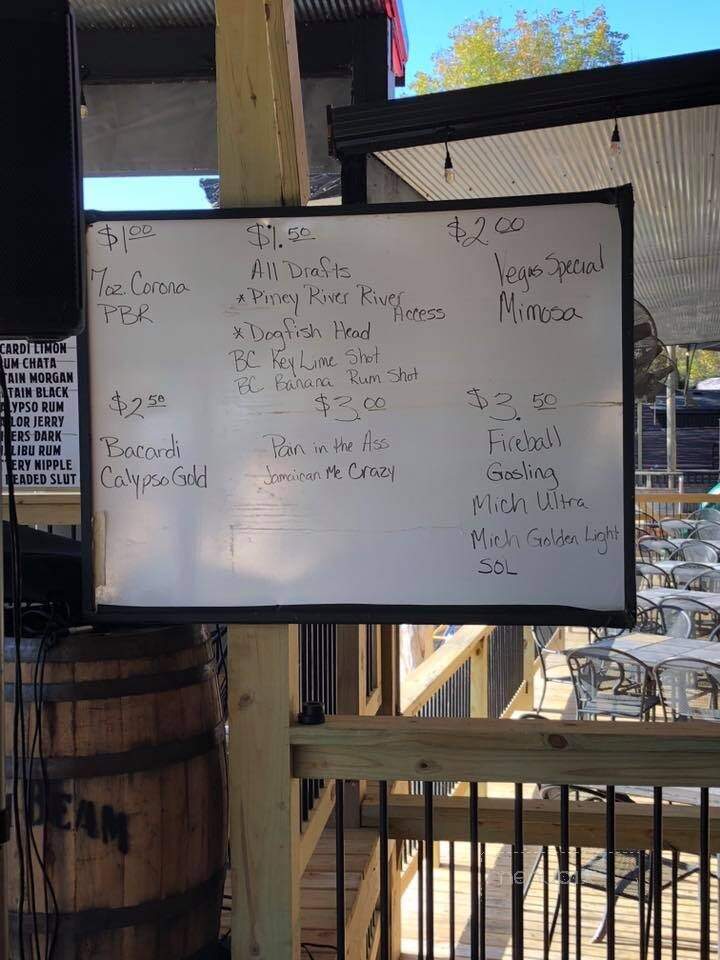 $1.00
7oz. Corona
PBR
$1.50
All Drafts
* Piney River River
Access
* Dogfish Head
BC Key Lime Shot
BC Banana Rum Shot
$2.00
Vegas Special
Mimosa
$2.50
Bacardi
Calypso Gold
$3.00
Pain in the Ass
Jamaican Me Crazy
$3.50
Fireball
Gosling
Mich Ultra
Mich Golden Light
SOL
CARDI LIMON
UM CHATA
TAIN MORGAN
TAIN BLACK
LYPSO RUM
LOR JERRY
ERS DARK
LIBU RUM
ERY NIPPLE
EADED SLUT
BEAM